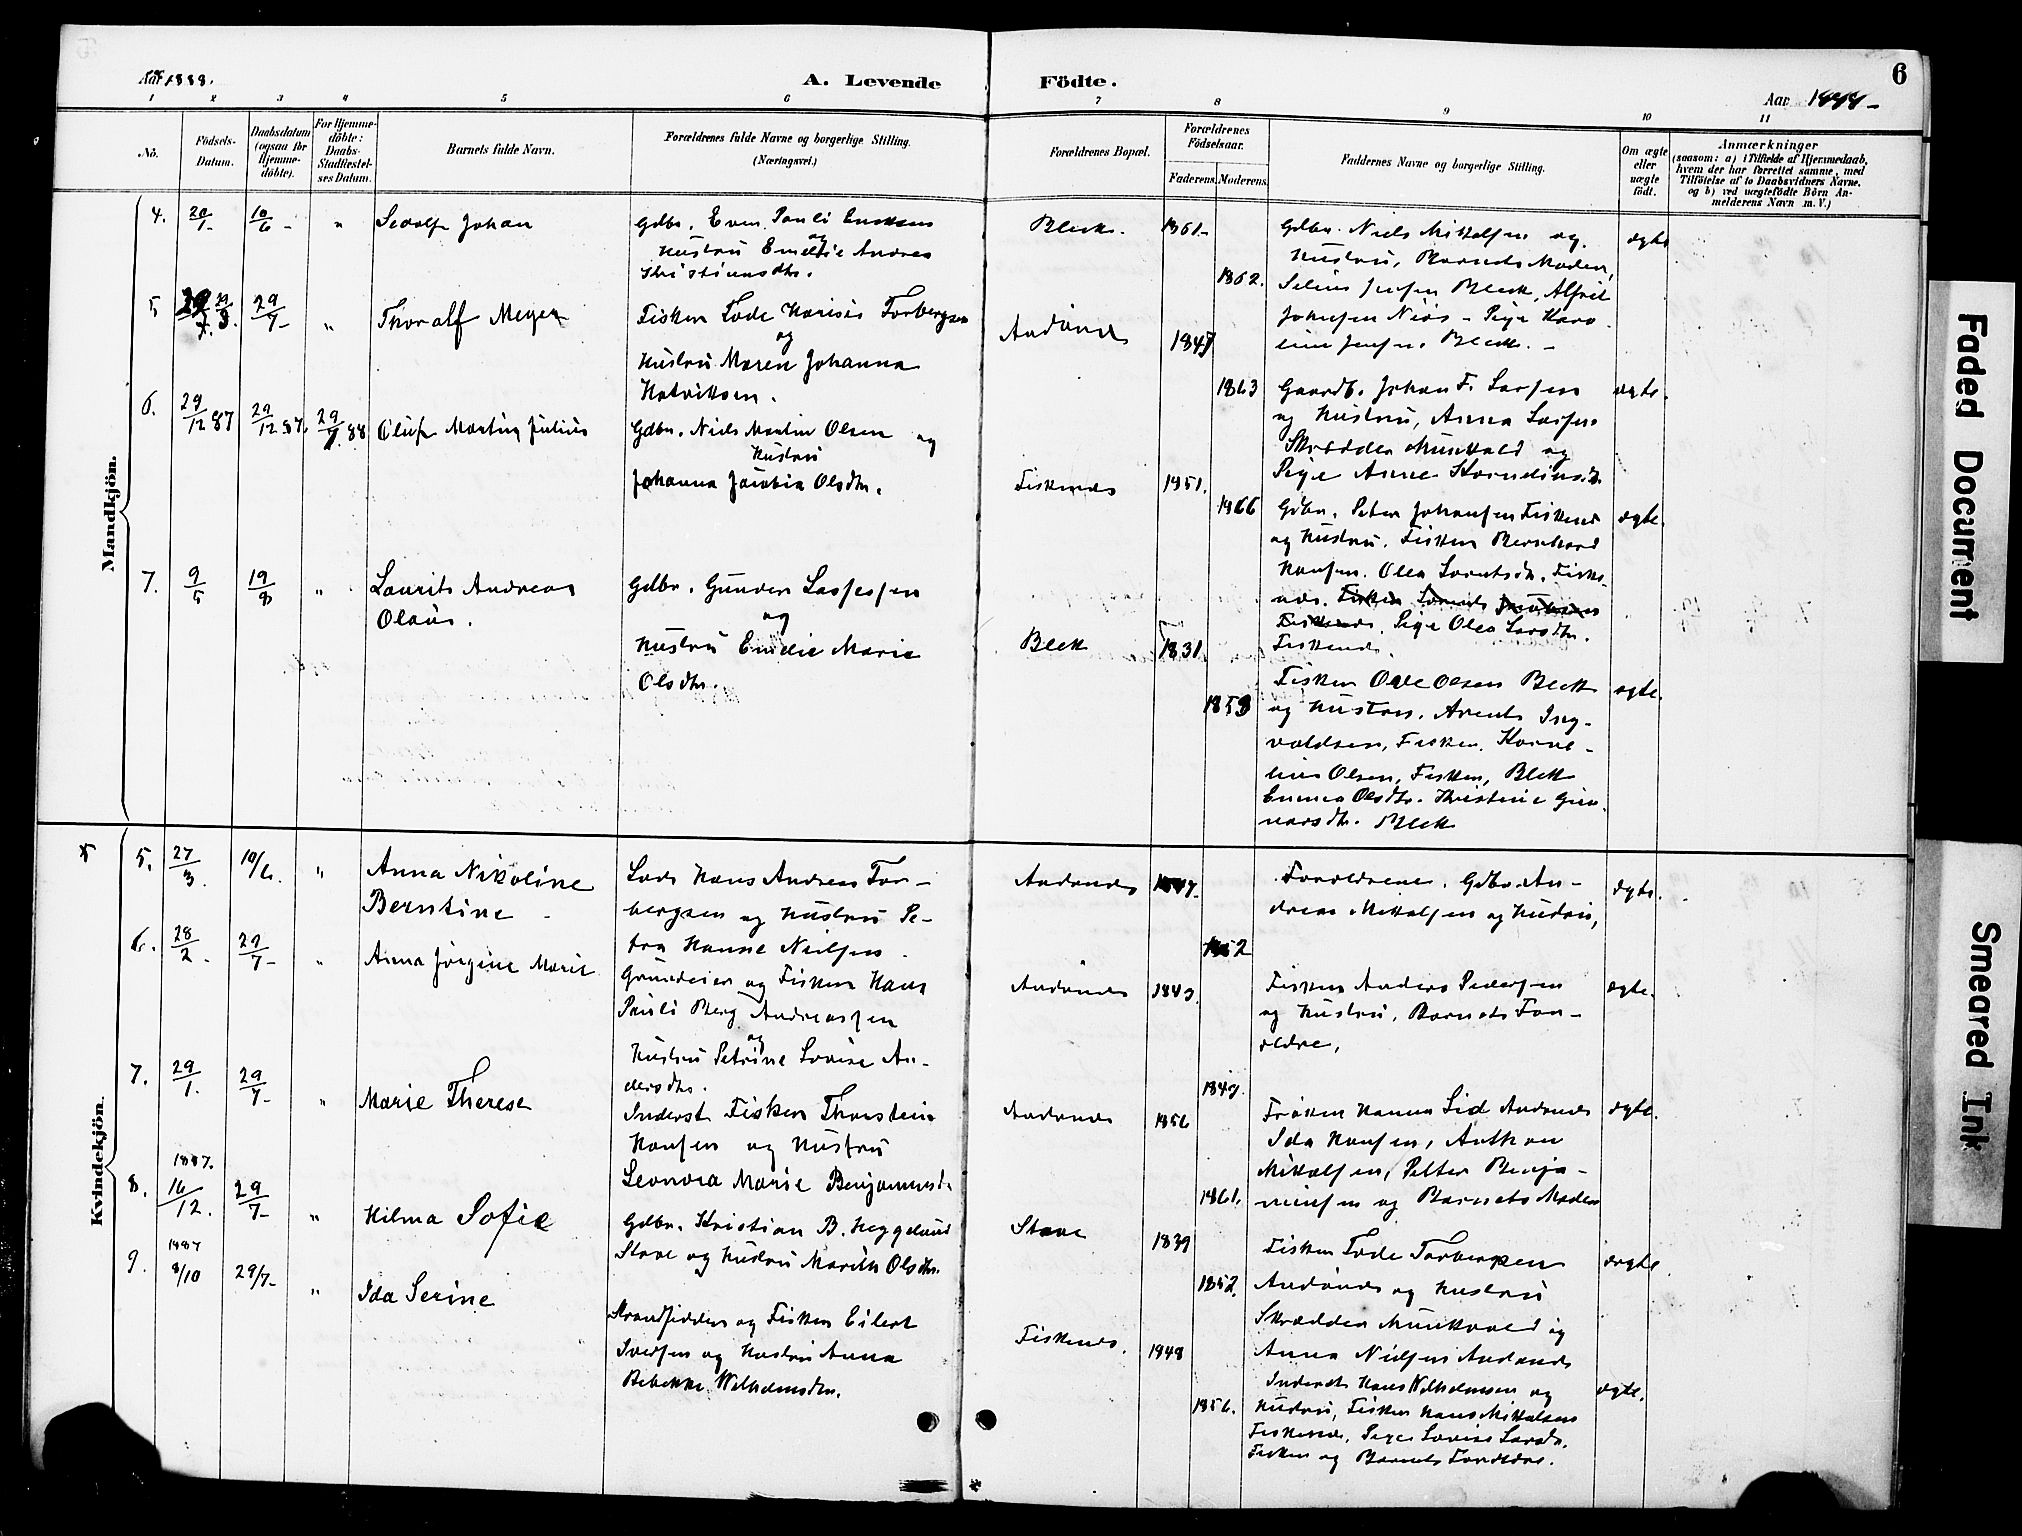 Aar 1888.
A. Levende
Födte.
Aar 1888 -
6
1 2 3 4 5 6 7 8 9 10 11
No.
Födsels-Datum.
Daabsdatum (ogsaa for Hjemme-döbte).
For Hjemme-döbte: Daabs-Stadfæstel-ses Datum.
Barnets fulde Navn.
Forældrenes fulde Navne og borgerlige Stilling. (Næringsvei.)
Forældrenes Bopæl.
Forældrenes Födselsaar.
Faderens. Moderens.
Faddernes Navne og borgerlige Stilling.
Om ægte eller uægte födt.
Anmærkninger
(saasom: a) i Tilfælde af Hjemmedaab, hvem der har forrettet samme, med Tilföielse af to Daabsvidners Navne, og b) ved uægtefödte Börn An-melderens Navn m. V.)
Mandkjön.
4. 20/1 10/6 - "
Johan
Gdbr. Even Pauli
og
Hustru Andrea
Bleik. 1861-
1862.
Gdbr. Niels Mikalsen og
Hustru, Barnets Moder,
Jensen Bleik,
Bleik. -
ægte
5 29/7 - "
Thoralf Meyer
Fisker Lode Torbergsen
og
Hustru Maren Johanna
Andønes 1847
1863
Gaardb. Johan F. Larsen
og Hustru, Anna Larsen
Skrædder og
Pige Anne
ægte.
6. 29/12 87 29/12 87. 29/7 88
Oluf Martin Julius
Gdbr. Niels Martin Olsen og
Hustru
Johanna Jacobia Olsdtr.
Fiskenes 1851.
1866
Gdbr. Peter Johansen Fiskenes
og Hustru. Fisker Bernhard
Hansen. Olea
Pige Olea Larsdtr.
Fiskenes.
ægte.
7. 9/5 19/8 "
Laurits Andreas
Olaus.
Gdbr. Gunder Lassesen
og
Hustru Emilie Marie
Olsdtr.
Bleik 1831.
1853
Fisker Ole Olsen Bleik
og Hustru. Arent Ing-
valdsen, Fisker. Korne-
lius Olsen, Fisker, Bleik
Emma Olsdtr. Kristine Gun-
narsdtr. Bleik
ægte.
Kvindekjön.
5. 27/3. 10/6. "
Anna Nikoline
Berntine -
Lods Hans Andreas Tor-
bergsen og Hustru Pe-
tra Hanne Nielsen.
Andønes 1847.
1852
Forældrene. Gdbr. An-
dreas Mikalsen og Hustru,
ægte.
6. 28/2. 29/7 - "
Anna Jørgine Marie
Grundeier og Fisker Hans
Pauli Berg Andreassen
og
Hustru Petrine Lovise An-
dersdtr.
Andønes 1843.
1847.
Fisker Anders Pedersen
og Hustru, Barnets For-
ældre,
ægte.
7. 29/1. 29/7 - "
Marie Therese
Inderst Fisker Thorstein
Hansen og Hustru
Leonora Marie Benjaminsd.
Andønes 1856
1861.
Frøken Hanna Lid Andønes
Ida Hansen, Anthon
Mikalsen, Petter Benja-
minsen og Barnets Moder
ægte.
8. 1887. 16/12. 29/7 - "
Hilma Sofie
Gdbr. Kristian B. Heggelund
Stave og Hustru Marith Olsdtr.
Stave 1839
1852.
Fisker Lode Torbergsen
Andønes og Hustru
Skrædder Munkvold og
Anna Nielsen Andønes
ægte.
9. 1887 8/10 29/7 - "
Ida Serine
Strandsidder og Fisker Eilert
Iversen og Hustru Anna
Bebekke Wilhelmsdtr.
Fiskenes. 1848
1856.
Inderst Hans Wilhelmsen og
Hustru, Fisker Hans Mikalsen
Fiskenes, Pige Lovise Larsdtr.
Fisken og Barnets Forældre.
ægte.
Faded Document
Smeared Ink